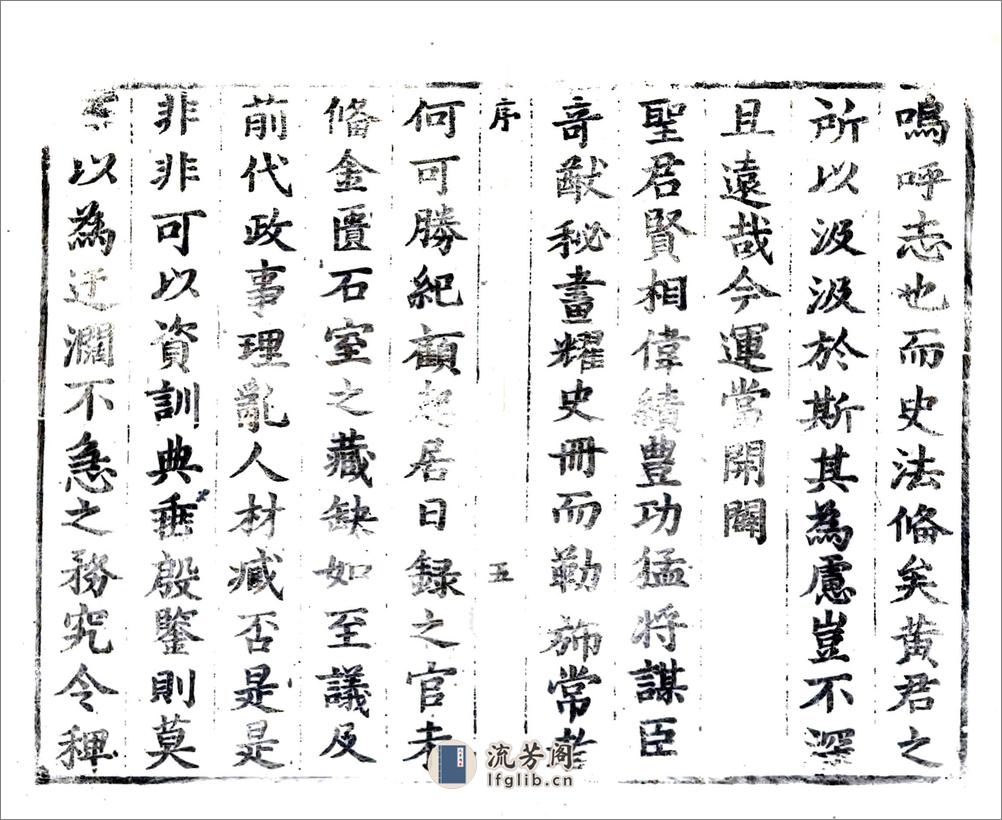 嗚呼志也而史法俻矣黄君之
所以汲汲於斯其為慮豈不深
且遠哉今運當開闢
聖君賢相偉績豊功猛將謀臣
竒猷秘畫耀史冊而勒旂常者
序 五
何可勝紀顧起居日録之官未
俻金匱石室之藏缺如至議及
前代政事理亂人材臧否是是
非非可以資訓典垂殷鑒則莫
以為迂濶不急之務究令稗
流芳阁
lfglib.cn